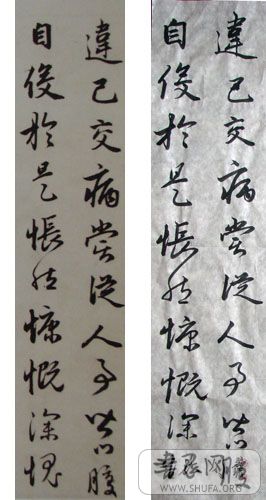 違己交病嘗從人事皆口腹
自役於是悵然慷慨深愧
違己交病嘗從人事皆口腹
自役於是悵然慷慨深
書法网
WWW.SHUFA.ORG